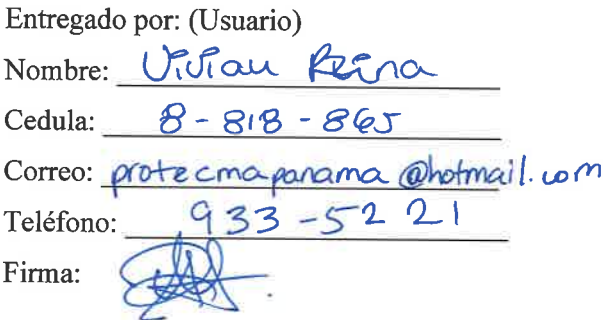 Entregado por: (Usuario)
Nombre: Vivian Reina
Cedula: 8-818-865
Correo: protecmapanama@hotmail.com
Teléfono: 933-5221
Firma: